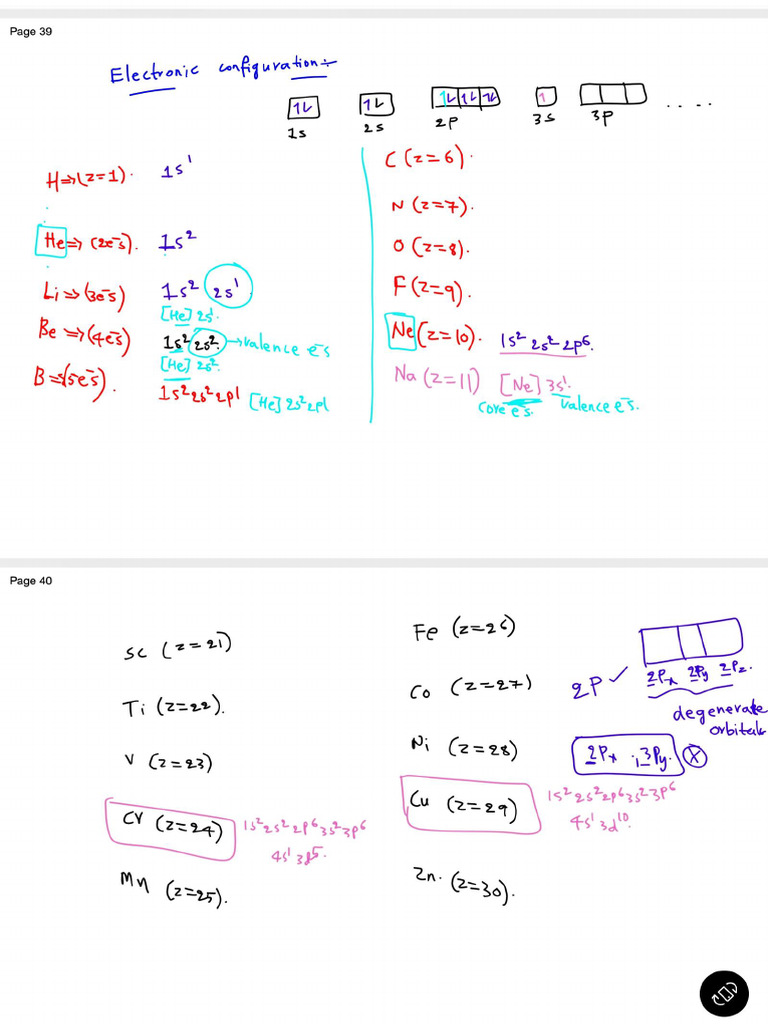 Page 39
Electronic configuration:-
1L 1L 1L 1L 1L 1 ....
1s 2s 2p 3s 3p
H⇒(z=1). 1s¹
He⇒(2e⁻s). 1s²
Li⇒(3e⁻s) 1s² 2s¹
[He] 2s¹.
Be⇒(4e⁻s) 1s² 2s². →valence e⁻s
[He] 2s².
B⇒(5e⁻s). 1s²2s²2p1 [He] 2s²2p1
C (z=6).
N (z=7).
O (z=8).
F (z=9).
Ne (z=10). 1s² 2s² 2p⁶.
Na (z=11) [Ne] 3s¹.
core e⁻s. valence e⁻s.
Page 40
Sc (z=21)
Ti (z=22).
V (z=23)
Cr (z=24) 1s²2s²2p⁶3s²3p⁶
4s¹ 3d⁵.
Mn (z=25).
Fe (z=26)
Co (z=27)
Ni (z=28)
Cu (z=29) 1s²2s²2p⁶3s²3p⁶
4s¹ 3d¹⁰.
Zn. (z=30).
2P ✓ 2Px 2Py 2Pz.
degenerate
orbitals
2Px ; 3Py. X